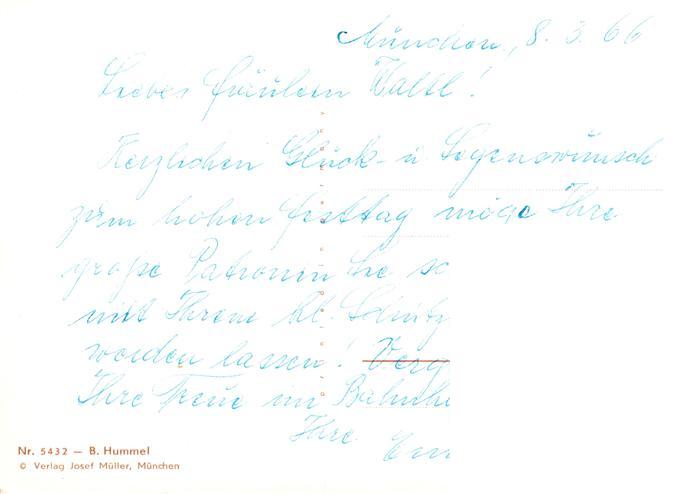 München, 8. 3. 66
Liebes Fräulein Waltl!
Herzlichen Glück- u. Segenswünsch
zum hohen Festtag möge Ihre
große Patronin Sie so
mit Ihrem hl. Schutz
werden lassen! Verg
Ihre Treue im Bahnh
Ihre
Nr. 5432 — B. Hummel
© Verlag Josef Müller, München